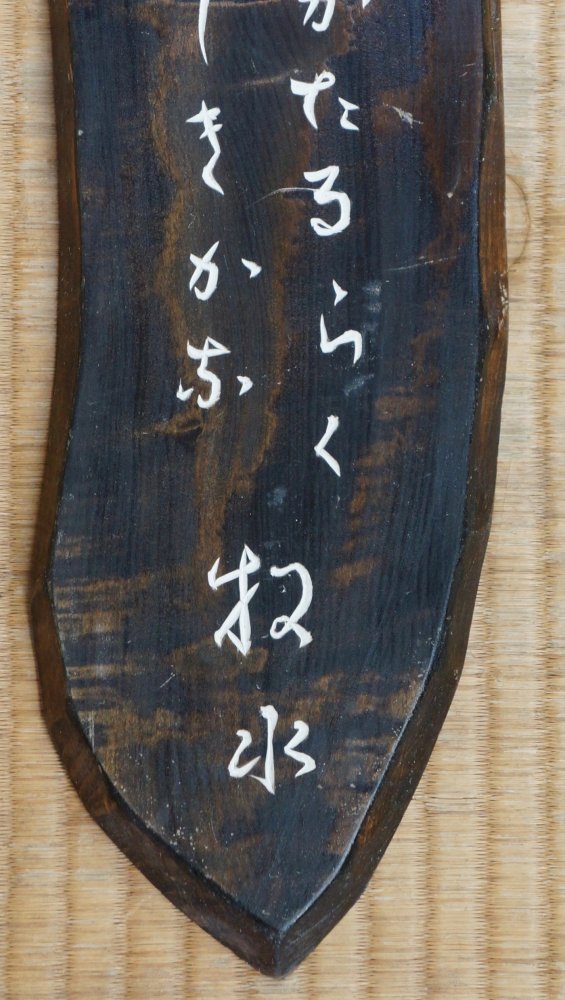 かたるらく
しきかな
牧水